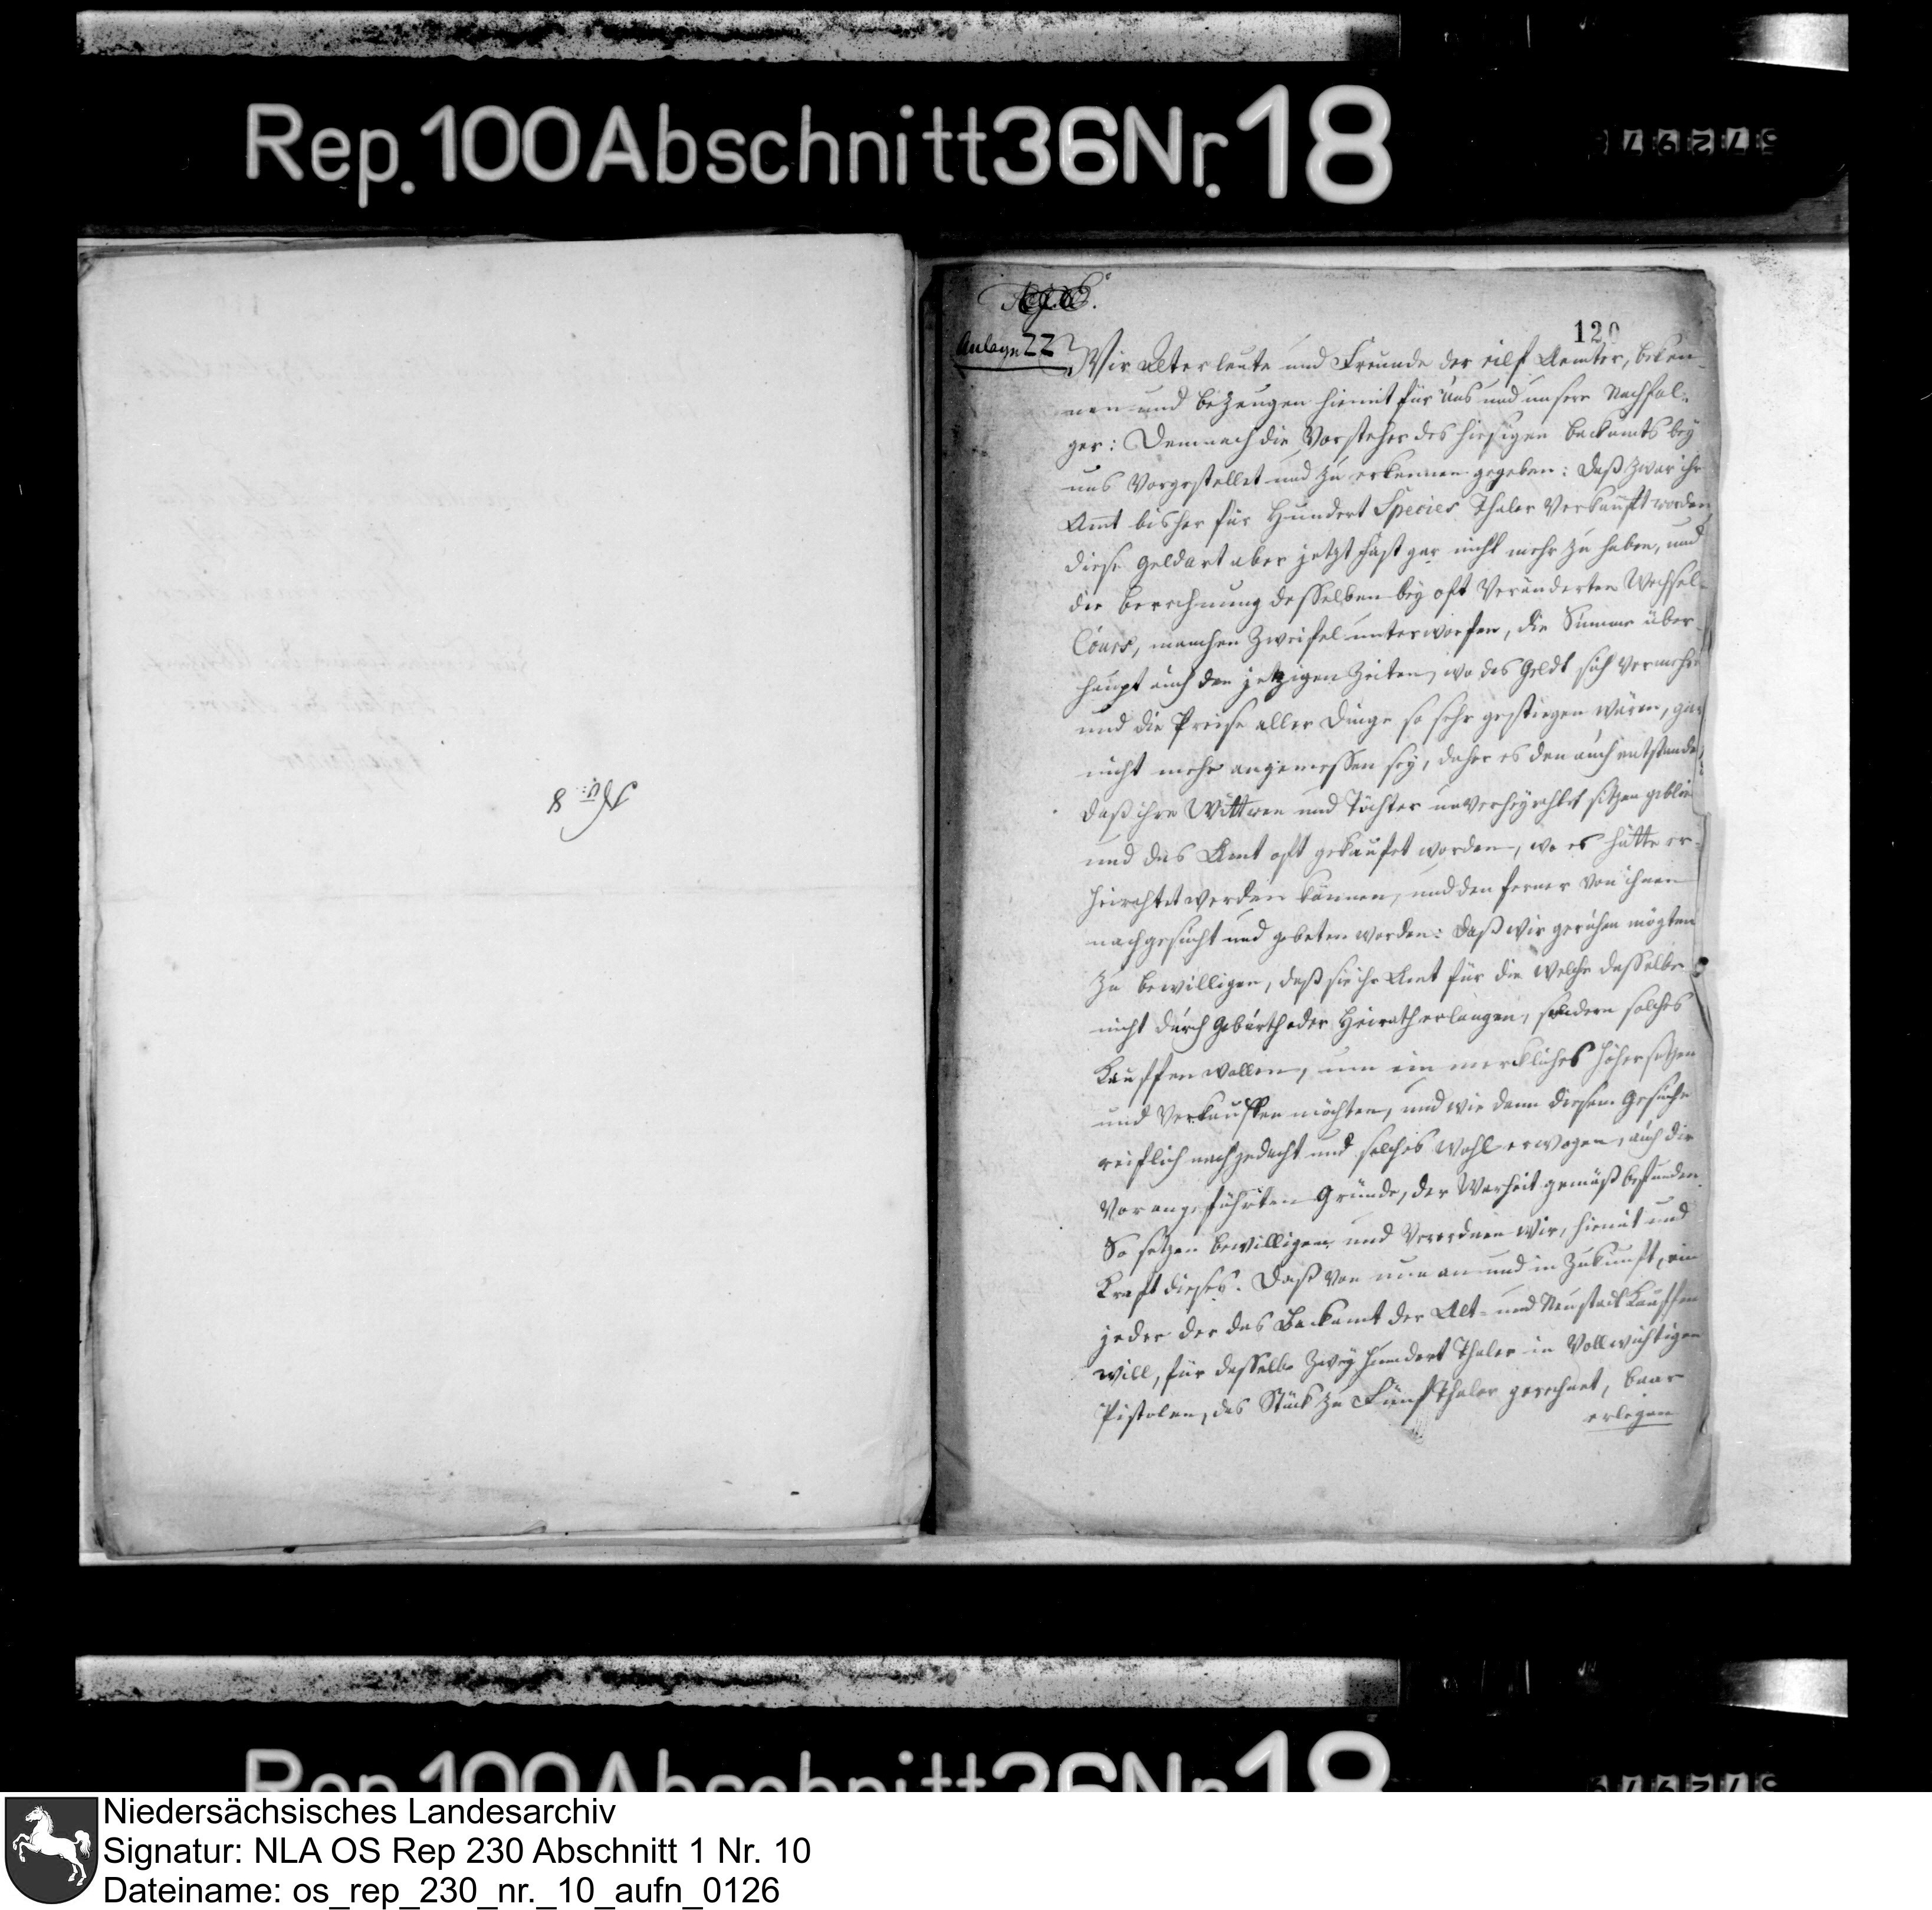 Rep. 100 Abschnitt 36 Nr. 18
120
Anlage ZZ
Wir Alterleute und Freunde der eilf Aemter, beken-
nen und bezeugen hiemit für Uns und unsere Nachfol-
ger: Demnach die Vorsteher des hiesigen Backamts bey
uns Vorgestellet und zu erkennen gegeben: Daß zwar ihr
Amt bisher für Hundert Species Thaler Verkauft worden,
diese Geldart aber jetzt fast gar nicht mehr zu haben, und
die Berechnung desselben bey oft Veränderten Wechsel-
Cours, manchen Zweifel unterworfen, die Summe über-
haupt auch den jetzigen Zeiten, wo das Geldt sich vermehrt
und die Preise aller Dinge so sehr gestiegen wären, gar
nicht mehr angemessen sey, daher es den auch entstanden
daß ihre Wittwen und Töchter unverheyrahtet sitzen geblie
und das Amt oft gekaufet worden, wo es hätte er-
heirahtet werden können, und den ferner von ihnen
nachgesucht und gebeten worden: Daß wir geruhen mögten
zu bewilligen, daß sie ihr Amt für die welche dasselbe
nicht durch Geburth oder Heirath erlangen, sondern solches
Kauffen wollen, um ein merckliches höher setzen
und Verkauffen möchten, und wir dann diesem Gesuche
reiflich nachgedacht und solches wohl erwogen, auch die
Vorangeführten Gründe, der Warheit gemäß befunden.
So setzen bewilligen und Verordnen wir, hiemit und
Kraft dieses. Daß von nun an und in Zukunft, ein
jeder der das Backamt der Alt- und Neustadt Kauffen
will, für dasselbe Zwey hundert Thaler in Vollwichtigen
Pistolen, das Stück zu Fünf Thaler gerechnet, baar
erlegen
8
Rep. 100 Abschnitt 36 Nr. 18
Niedersächsisches Landesarchiv
Signatur: NLA OS Rep 230 Abschnitt 1 Nr. 10
Dateiname: os_rep_230_nr._10_aufn_0126